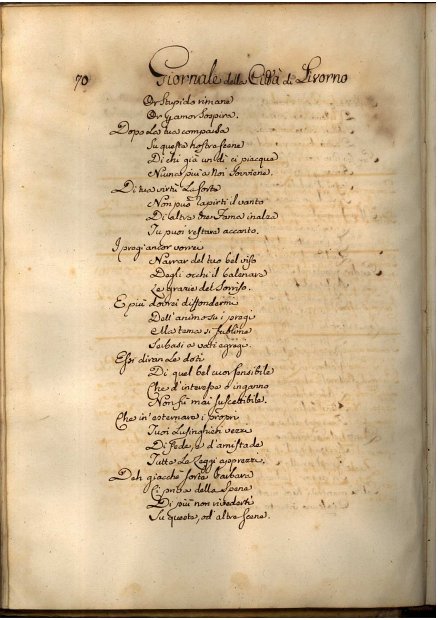 70 Giornale della Città di Livorno
Or stupido rimane
Or d'amor sospira.
Dopo la tua comparsa
Su queste nostre scene
Di chi già un dì ci piacque
Niuna più a noi sovviene.
Di tua virtù la sorte
Non può rapirti il vanto
Di altre Fama inalza
Tu puoi restare accanto.
I pregi ancor vorrei
Narrar del tuo bel viso
Degli occhi il balenare
Le grazie del sorriso.
E più dovrei diffondermi
Dell'animo su i pregi
Ma tema sì sublime
Serbasi a vati egregi.
Essi diran le doti
Di quel bel cuor sensibile
Che d'interesse o inganno
Non fù mai suscettibile.
Che in esternare i proprj
Tuoi lusinghieri vezzi
Di fede, e d'amistade
Tutte le leggi apprezzi.
Deh giacchè sorte barbara
Ci priva della speme
Di più non rivederti
Su queste, od' altre scene.